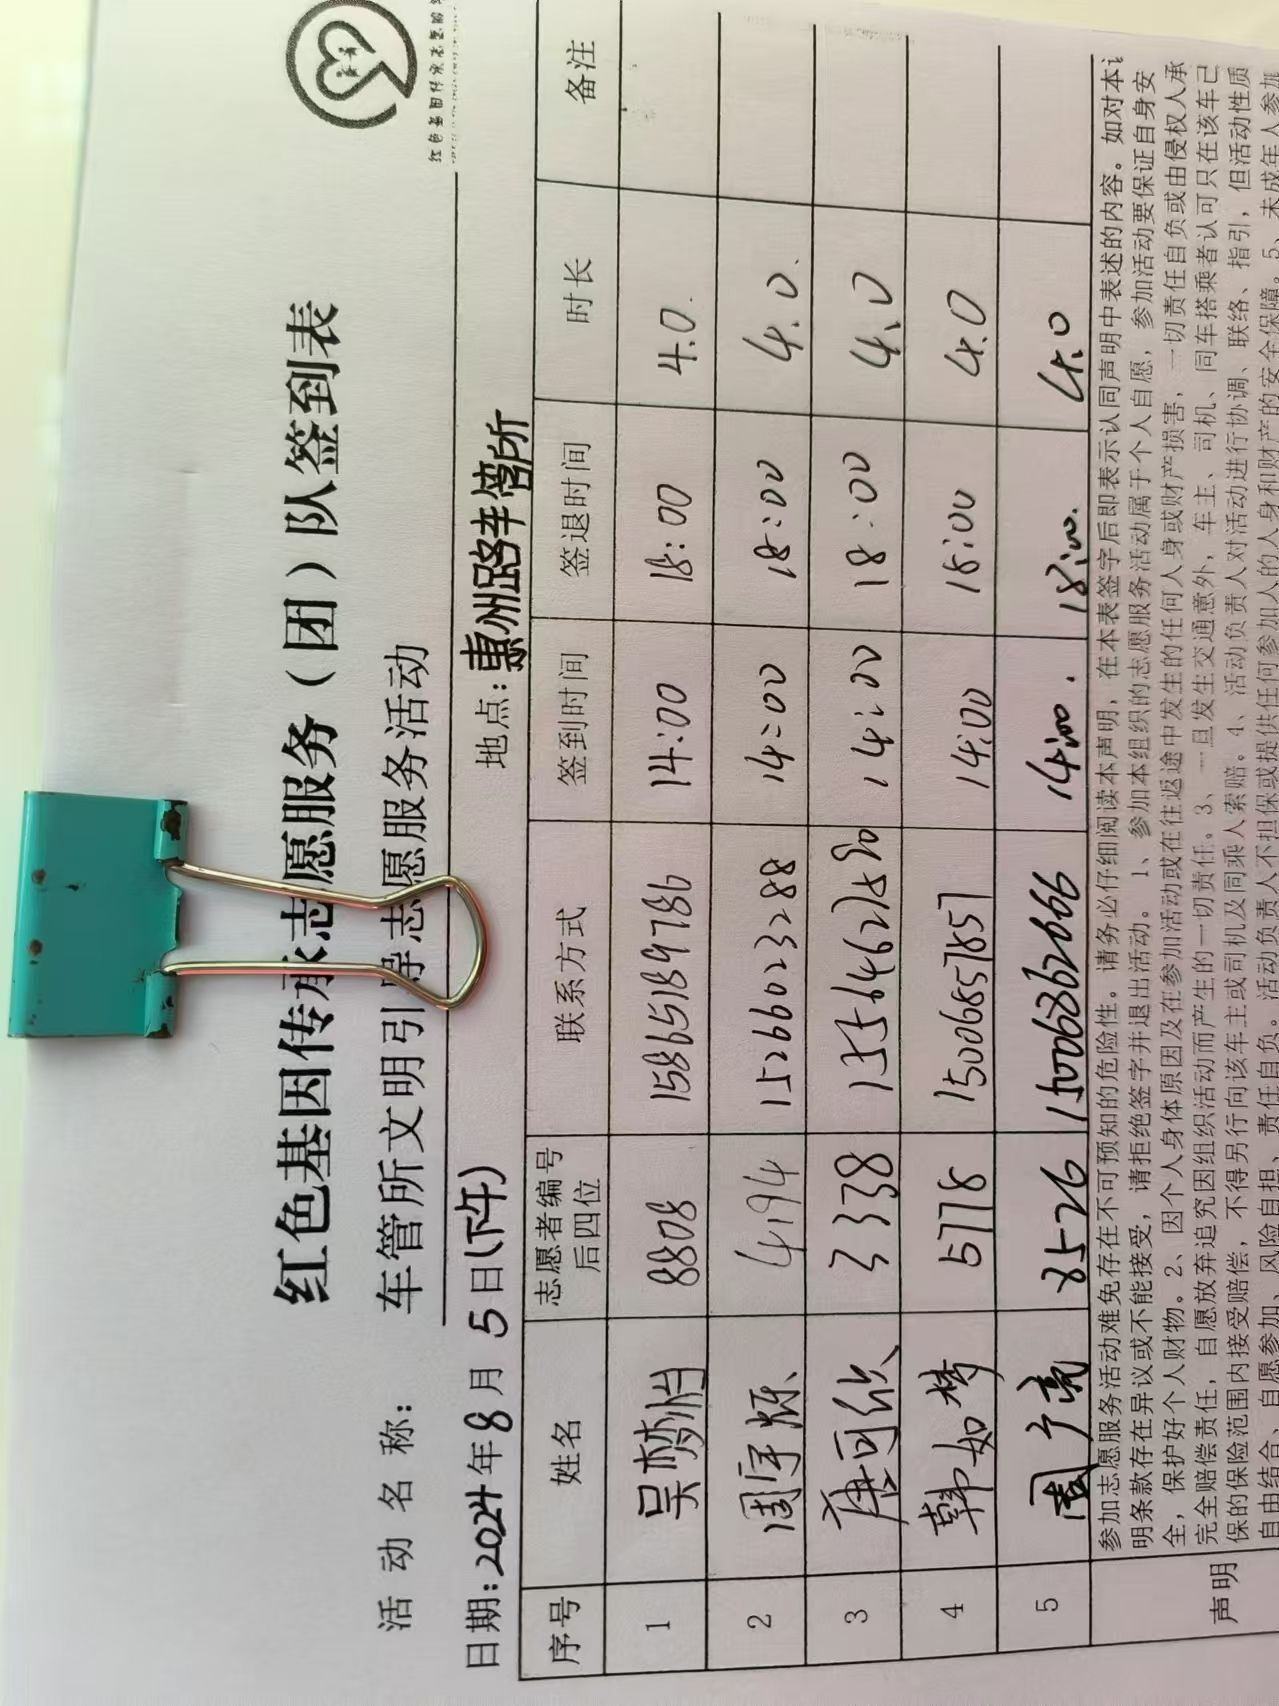 红色基因传承志愿服务（团）队签到表
活动名称：车管所文明引导志愿服务活动
日期：2024年8月5日（下午） 地点：惠州路车管所
序号 姓名 志愿者编号后四位 联系方式 签到时间 签退时间 时长 备注
1 吴梦怡 8808 15865189786 14:00 18:00 4.0.
2 周宇烁 4194 15266023288 14:00 18:00 4.0.
3 唐可欣 3338 14:00 18:00 4.0
4 韩如梦 5778 15006857857 14:00 18:00 4.0
5 周广亮 8526 15006862666 14:00. 18:00. 4.0
声明
参加志愿服务活动难免存在不可预知的危险性。请务必仔细阅读本声明，在本表签字后即表示认同声明中表述的内容。如对本
明条款存在异议或不能接受，请拒绝签字并退出活动。1、参加本组织的志愿服务活动属于个人自愿，参加活动要保证自身安
全，保护好个人财物。2、因个人身体原因及在参加活动或在往返途中发生的任何人身或财产损害，一切责任自负或由侵权人承
完全赔偿责任，自愿放弃追究因组织活动而产生的一切责任。3、一旦发生交通意外，车主、司机、同车搭乘者认可只在该车已
保的保险范围内接受赔偿，不得另行向该车主或司机及同乘人索赔。4、活动负责人对活动进行协调、联络、指引，但活动性质
自由结合、自愿参加、风险自担、责任自负。活动负责人不担保或提供任何参加人的人身和财产的安全保障。5、未成年人参加